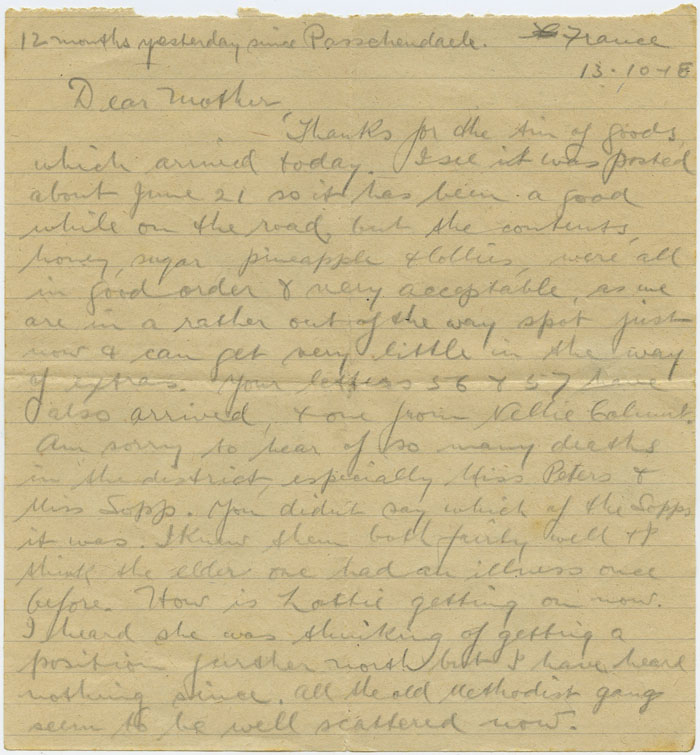 12 months yesterday since Passchendaele. France
13.10.18
Dear Mother
Thanks for the tin of goods,
which arrived today. I see it was posted
about June 21 so it has been a good
while on the road, but the contents,
honey, sugar pineapple & lollies, were all
in good order & very acceptable, as we
are in a rather out of the way spot just
now & can get very little in the way
of extras. Your letters 56 & 57 have
also arrived, & one from Nellie
Am sorry to hear of so many deaths
in the district, especially Miss Peters &
Miss Sopp. You didn't say which of the Sopps
it was. I knew them both fairly well & I
think the elder one had an illness once
before. How is Lottie getting on now.
I heard she was thinking of getting a
position further north but I have heard
nothing since. All the old Methodist gang
seem to be well scattered now.